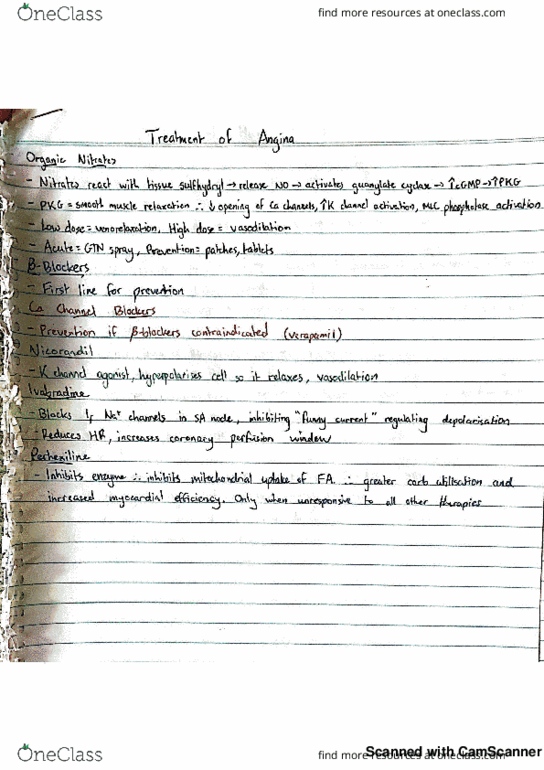 OneClass
find more resources at oneclass.com
Treatment of Angina
Organic Nitrates
- Nitrates react with tissue sulfhydryl → release NO → activates guanylate cyclase → ↑cGMP → ↑PKG
- PKG = smooth muscle relaxation ∴ ↓ opening of Ca channels, ↑K channel activation, MLC phosphatase activation.
- Low dose = venorelaxation, High dose = vasodilation
- Acute = GTN spray, Prevention = patches, tablets
β-Blockers
- First line for prevention
Ca Channel Blockers
- Prevention if β-blockers contraindicated (verapamil)
Nicorandil
- K channel agonist, hyperpolarises cell so it relaxes, vasodilation
Ivabradine
- Blocks If Na+ channels in SA node, inhibiting "funny current" regulating depolarisation
- Reduces HR, increases coronary perfusion window
Perhexiline
- Inhibits enzyme ∴ inhibits mitochondrial uptake of FA ∴ greater carb utilisation and
increased myocardial efficiency. Only when unresponsive to all other therapies
OneClass
find more resources at oneclass.com
Scanned with CamScanner